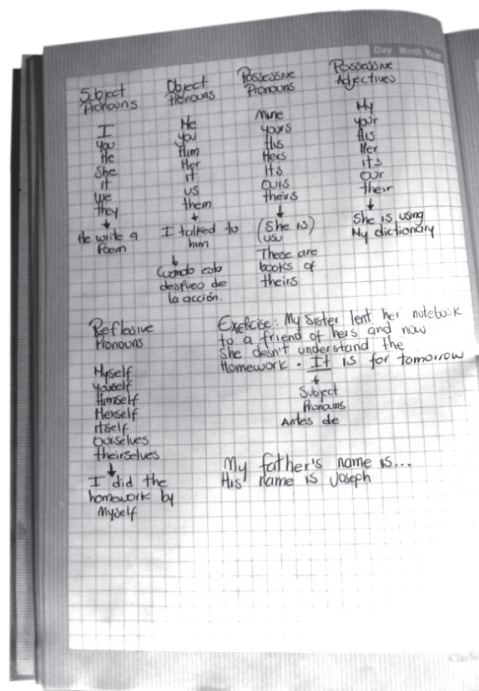 Day Month Year
Subject Pronouns
I
you
He
She
it
we
they
He write a
Poem
Object Pronouns
Me
you
Him
Her
it
us
them
I talked to
him
Cuando esta
despues de
la acción.
Possessive Pronouns
Mine
yours
His
Hers
Its
ours
theirs
(She is)
These are
books of
theirs
Possessive Adjectives
My
your
His
Her
its
our
their
She is using
My dictionary
Reflexive
Pronouns
Myself
youself
Himself
Herself
itself
Ourselves
theirselves
I did the
homework by
Myself
Exercise: My Sister lent her notebook
to a friend of hers and now
She desn't understand the
Homework. It is for tomorrow
Subject
Pronouns
Antes de
My father's name is...
His name is Joseph